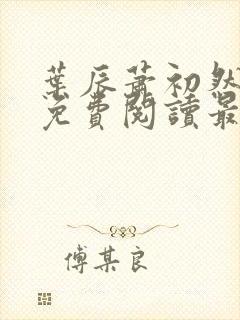 葉辰蕭初然
免費閱讀最
傅某良